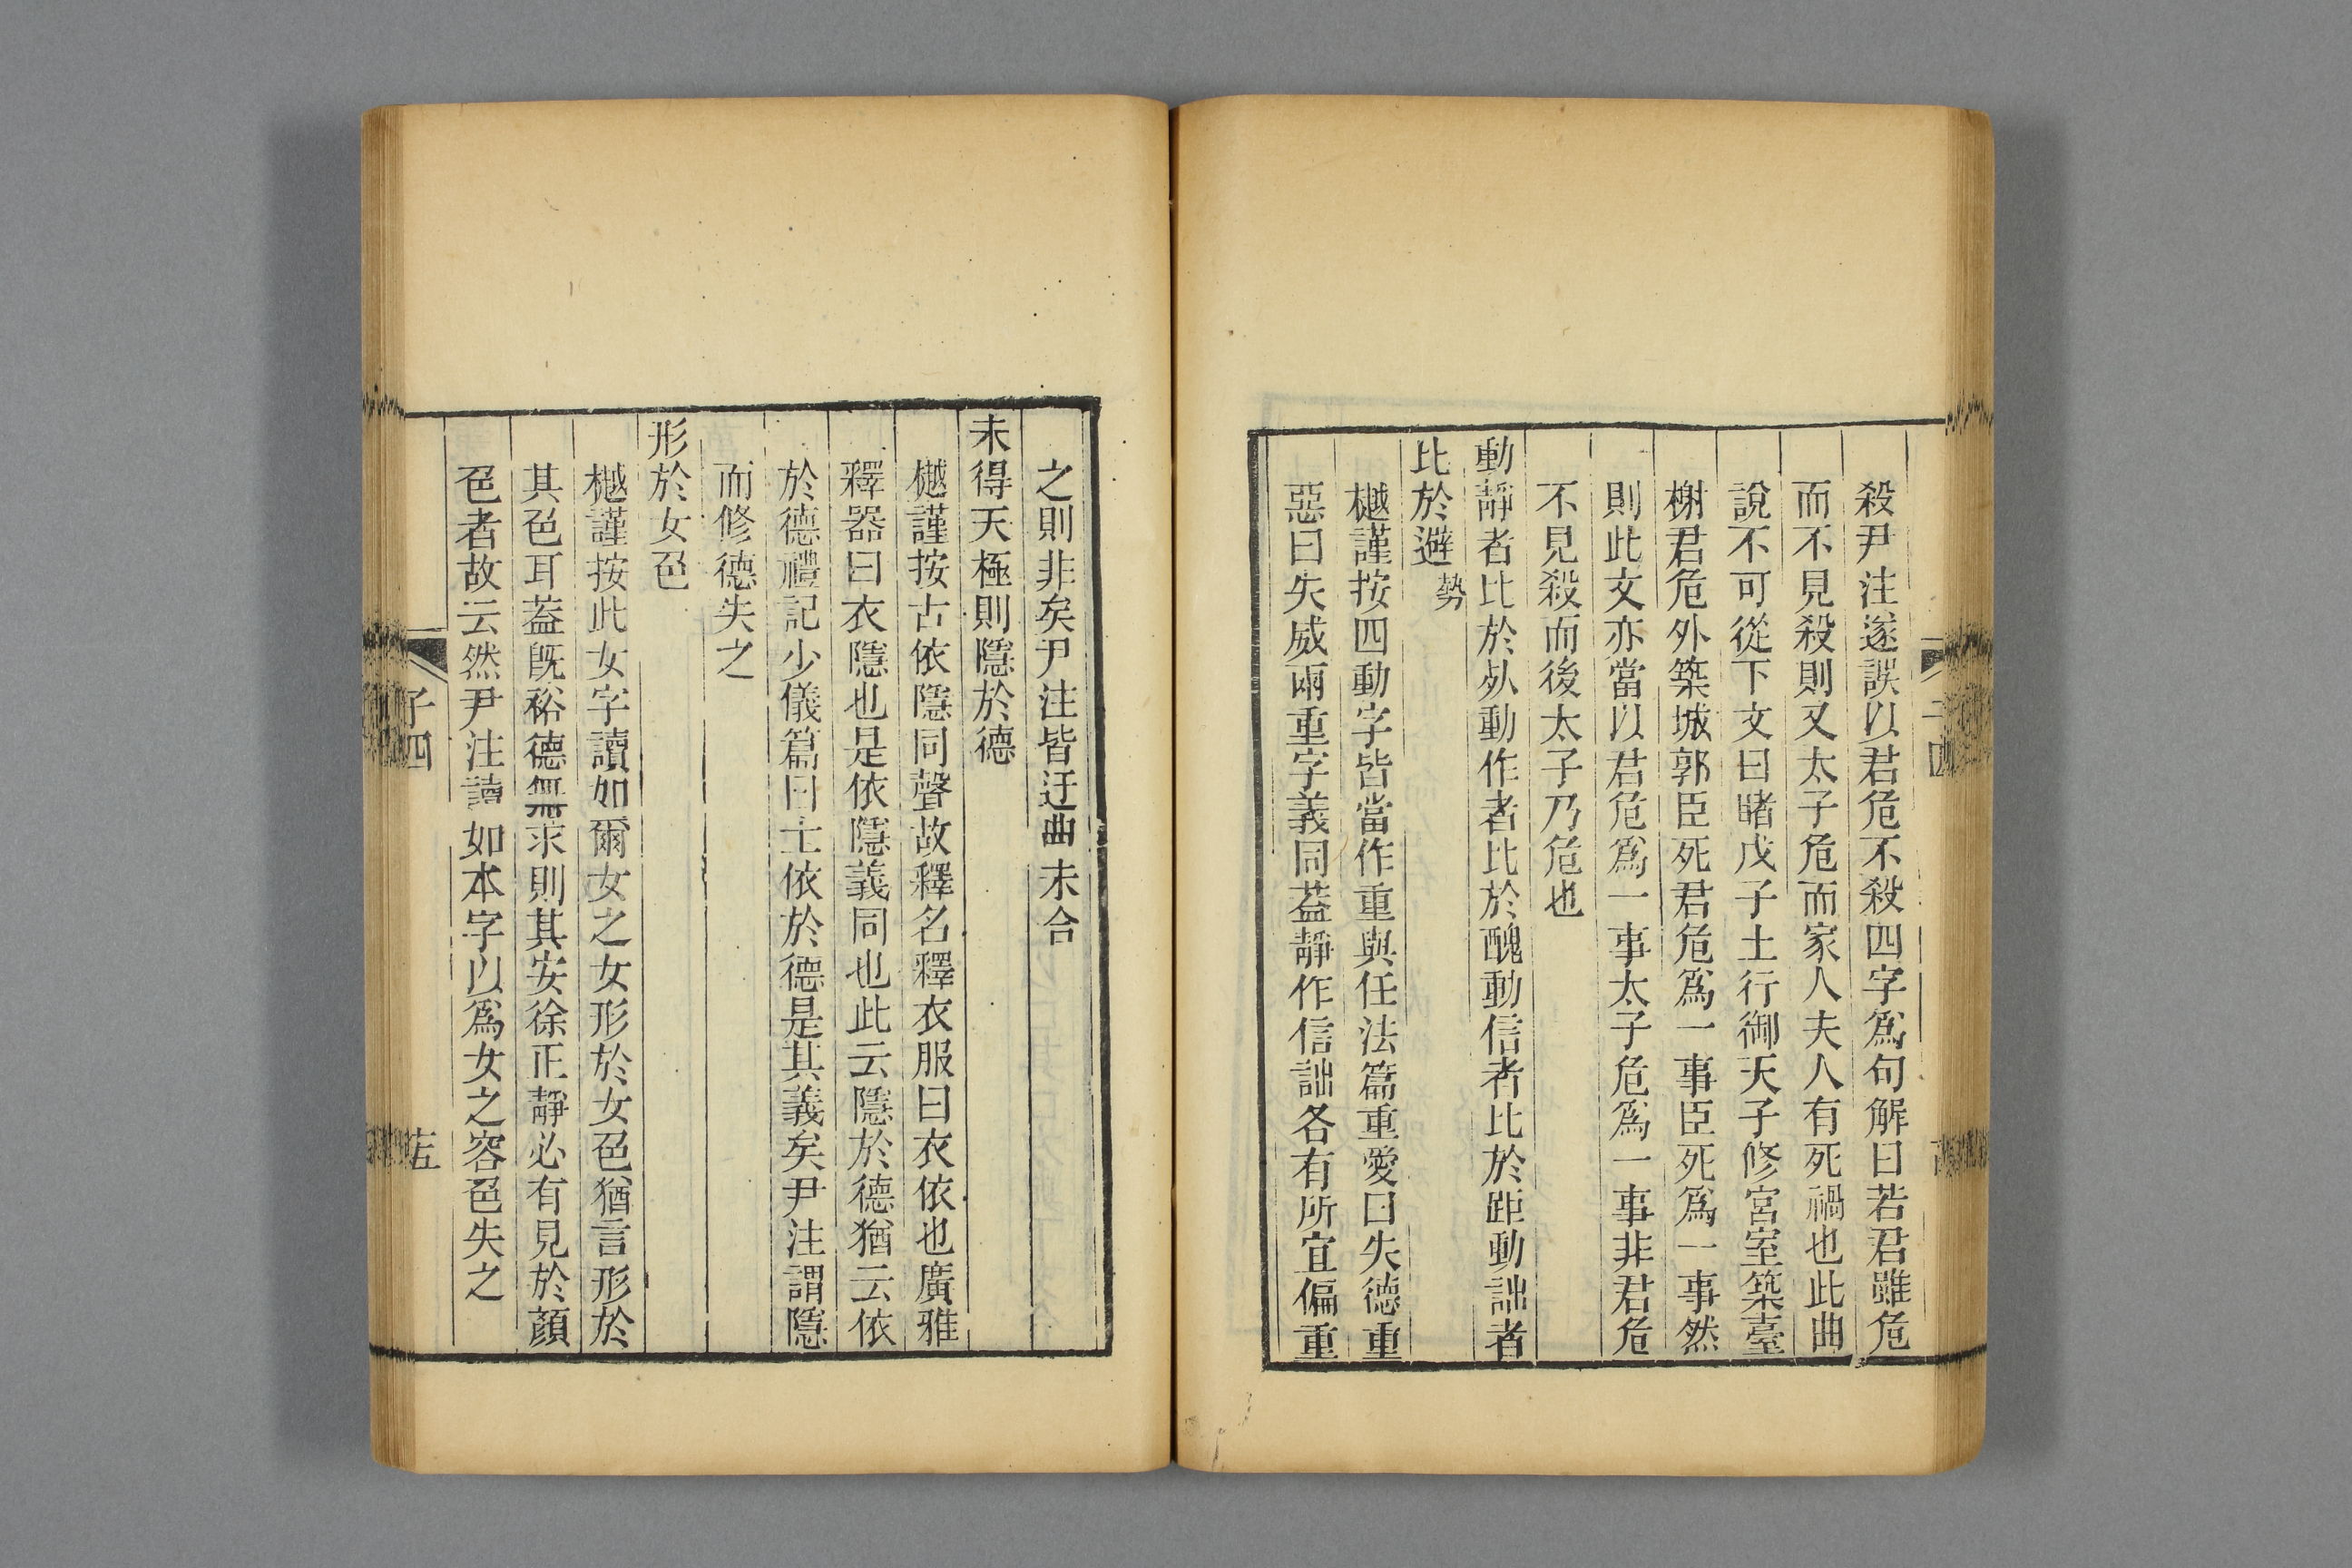 殺尹注遂誤以君危不殺四字爲句解曰若君雖危
而不見殺則又太子危而家人夫人有死禍也此曲
說不可從下文曰睹戊子土行御天子修宮室築臺
榭君危外築城郭臣死君危爲一事臣死爲一事然
則此文亦當以君危爲一事太子危爲一事非君危
不見殺而後太子乃危也
動靜者比於𣦸動作者比於醜動信者比於距動詘者
比於避勢
樾謹按四動字皆當作重與任法篇重愛曰失德重
惡曰失威兩重字義同葢靜作信詘各有所宜偏重
之則非矣尹注皆迂曲未合
未得天極則隱於德
樾謹按古依隱同聲故釋名釋衣服曰衣依也廣雅
釋器曰衣隱也是依隱義同也此云隱於德猶云依
於德禮記少儀篇曰士依於德是其義矣尹注謂隱
而修德失之
形於女色
樾謹按此女字讀如爾女之女形於女色猶言形於
其色耳葢旣裕德無求則其安徐正靜必有見於顏
色者故云然尹注讀如本字以爲女之容色失之
子四